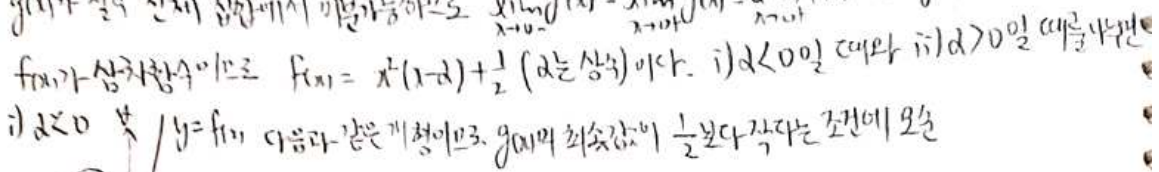 g(x)가 실수 전체 집합에서 미분가능하므로 lim x→0- g'(x) = lim x→0+ g'(x) = x→0+
f(x)가 삼차함수이므로 f(x) = x²(x-α)+1/2 (α는 상수)이다. i)α<0일 때와 ii)α>0일 때를 나누면
i) α<0 y=f(x) 다음과 같은 개형이므로, g(x)의 최솟값이 1/2보다 작다는 조건에 모순